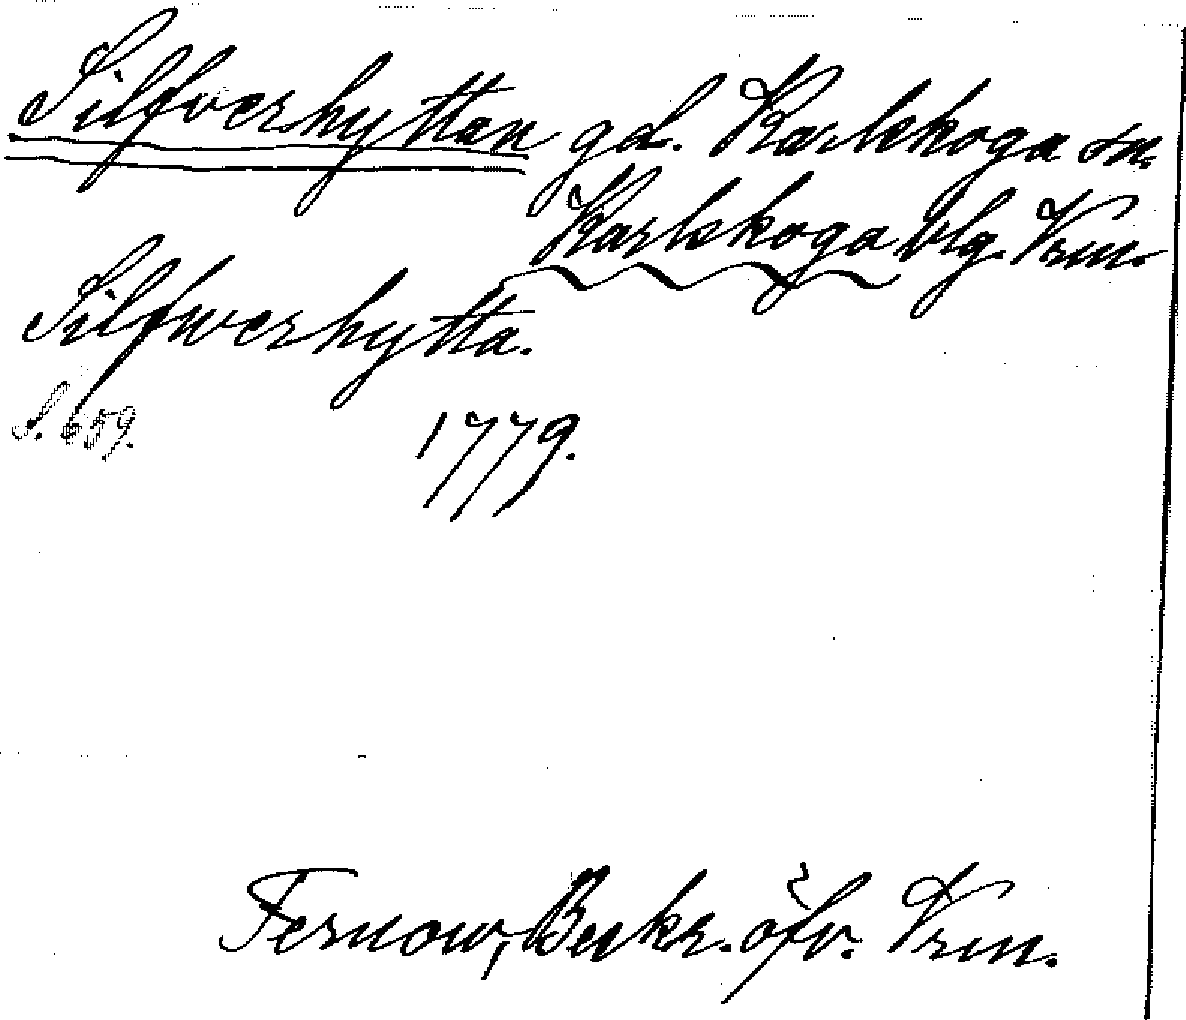 Silfverhyttan gd. Karlskoga sn.
Karlskoga blg. Vrm.
Silfwerhytta.
S. 659.
1779.
Fernow, Beskr. öfv. Vrm.